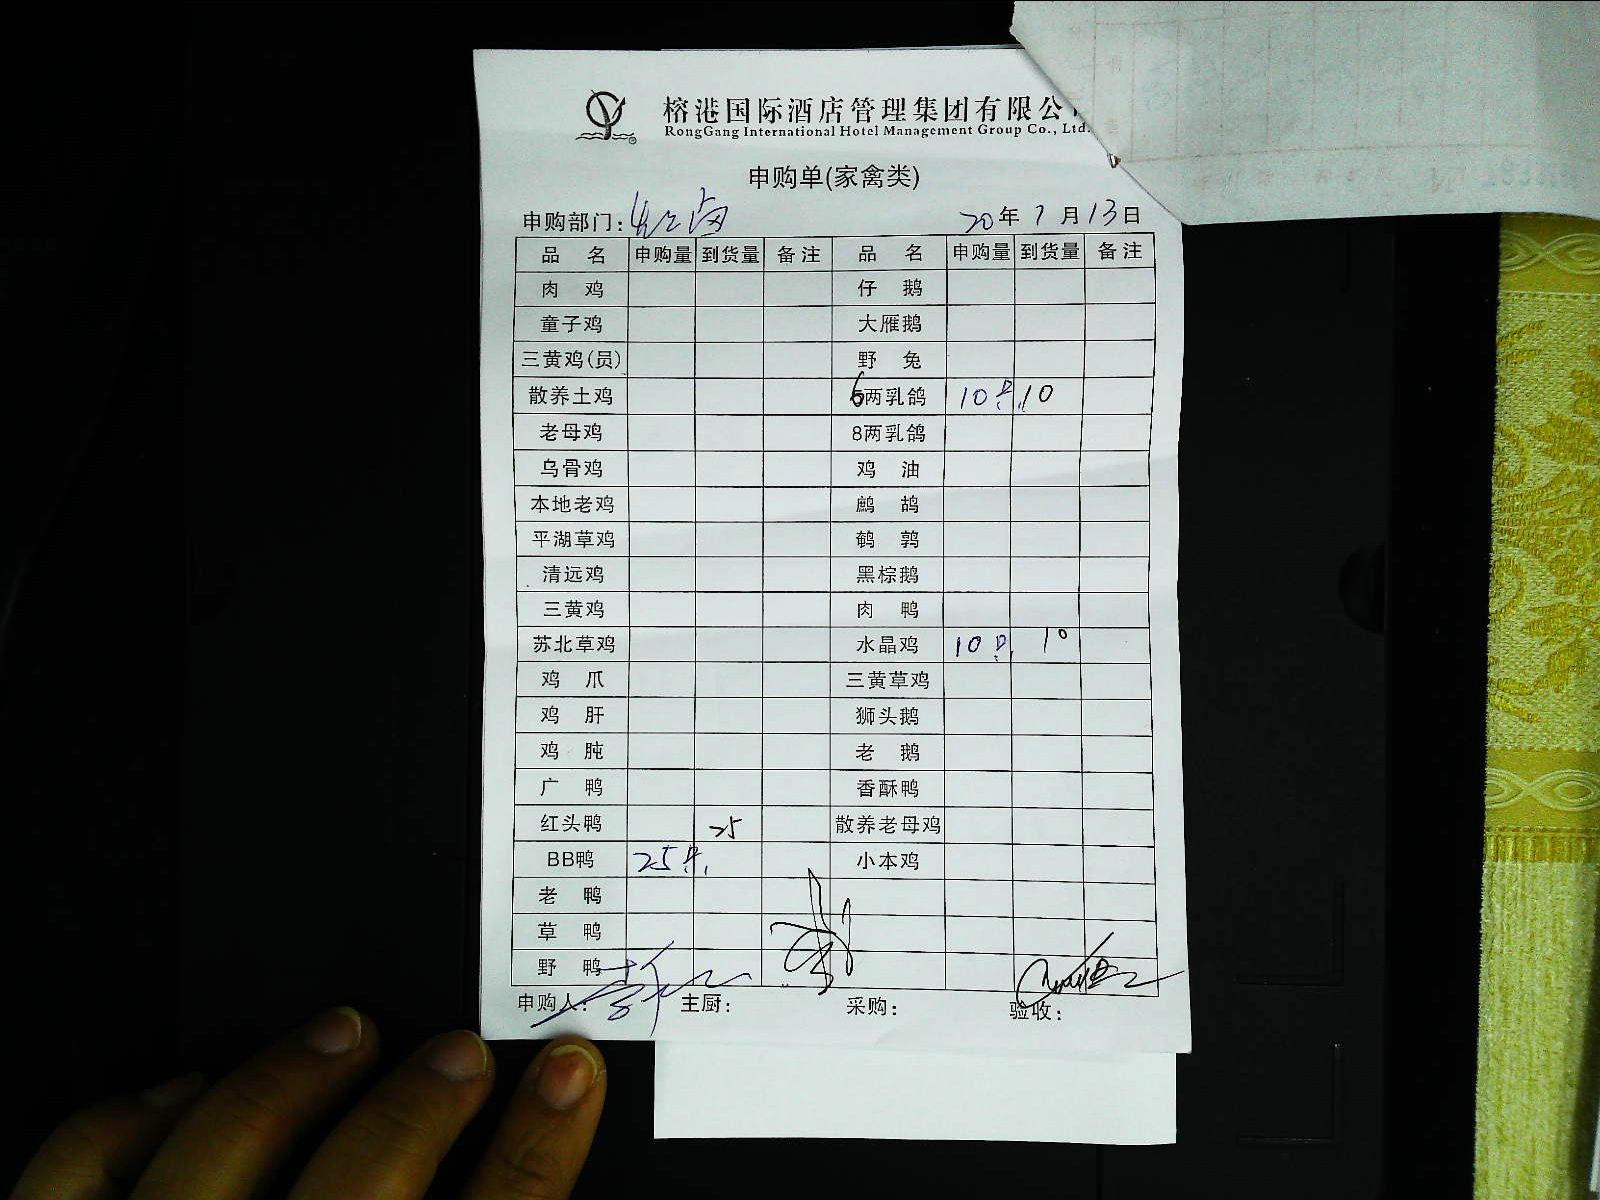 榕港国际酒店管理集团有限公
RongGang International Hotel Management Group Co., Ltd.
申购单(家禽类)
申购部门: 20年 7月13日
品 名 申购量 到货量 备注 品 名 申购量 到货量 备注
肉 鸡 仔 鹅
童子鸡 大雁鹅
三黄鸡(员) 野 兔
散养土鸡 6两乳鸽 10只 10
老母鸡 8两乳鸽
乌骨鸡 鸡 油
本地老鸡 鹧 鸪
平湖草鸡 鹌 鹑
清远鸡 黑棕鹅
三黄鸡 肉 鸭
苏北草鸡 水晶鸡 10只 10
鸡 爪 三黄草鸡
鸡 肝 狮头鹅
鸡 肫 老 鹅
广 鸭 香酥鸭
红头鸭 25 散养老母鸡
BB鸭 25只 小本鸡
老 鸭
草 鸭
野 鸭
申购人: 主厨: 采购: 验收: